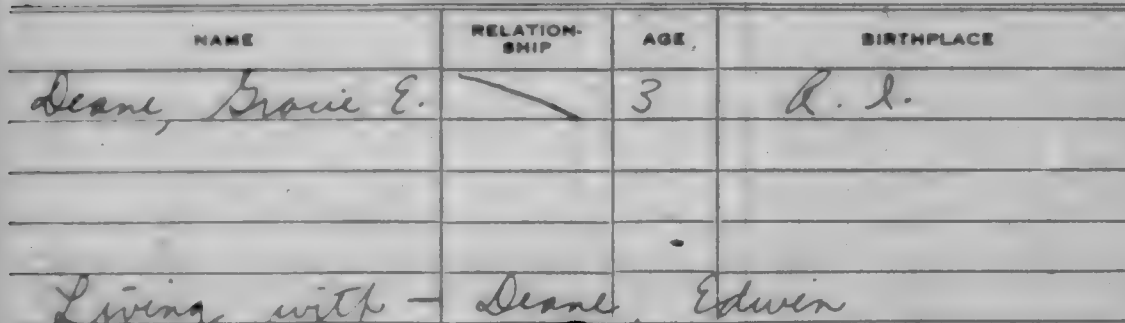 NAME RELATION-SHIP AGE BIRTHPLACE
Deane, Gracie E. 3 R. I.
Living with - Deane, Edwin